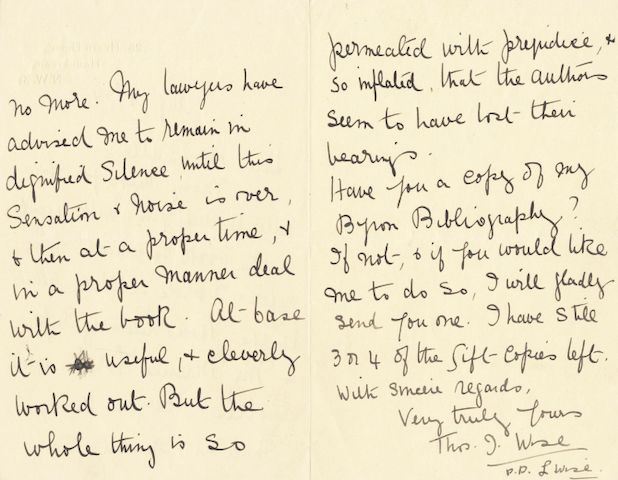 no more. My lawyers have
advised me to remain in
dignified Silence until this
Sensation & Noise is over,
& then at a proper time, &
in a proper manner deal
with the book. At base
it is useful, & cleverly
worked out. But the
whole thing is so
permeated with prejudice, &
so inflated, that the authors
seem to have lost their
bearings.
Have you a copy of my
Byron Bibliography?
If not, & if you would like
me to do so, I will gladly
send you one. I have still
3 or 4 of the Gift-copies left.
With sincere regards,
Very truly yours
Thos. J. Wise
p.p. L Wise.